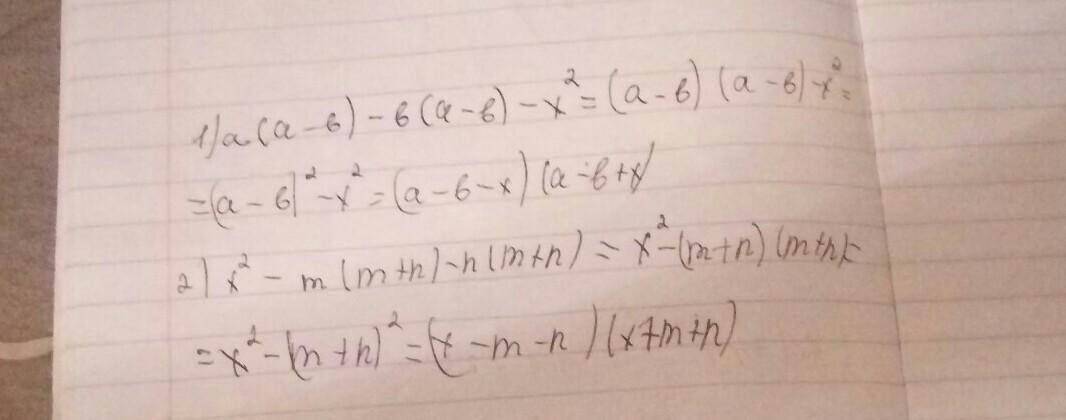 1) a(a-b)-b(a-b)-x²=(a-b)(a-b)-x²=
=(a-b)²-x²=(a-b-x)(a-b+x)
2) x²-m(m+n)-n(m+n)=x²-(m+n)(m+n)=
=x²-(m+n)²=(x-m-n)(x+m+n)